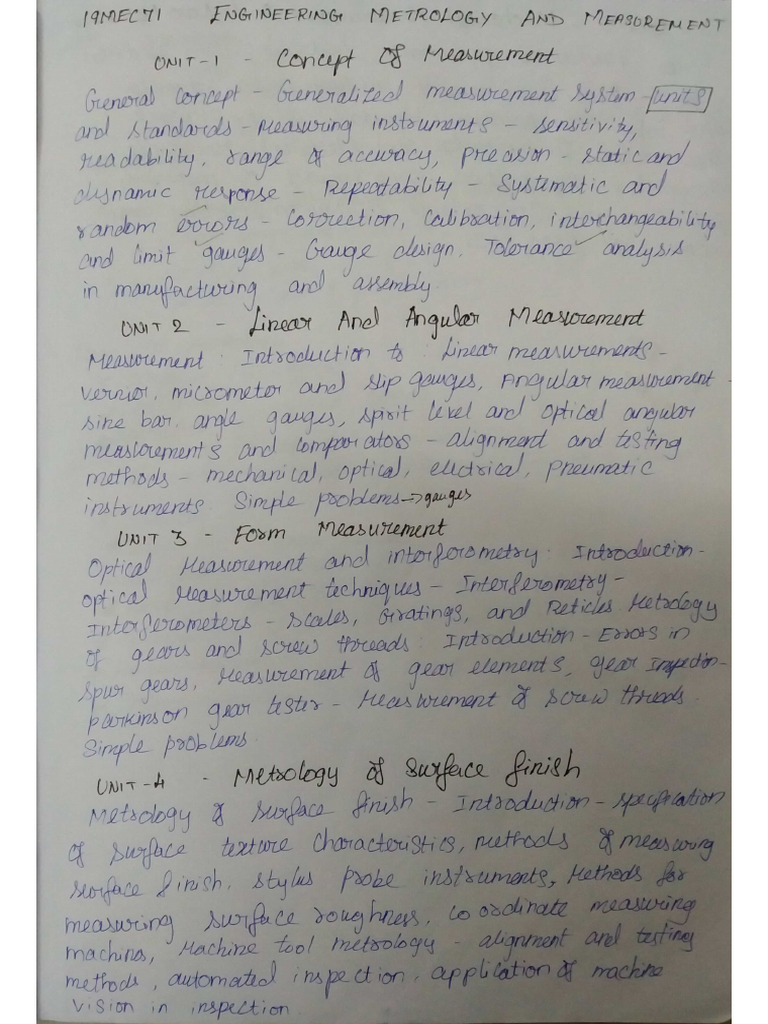 19MEC71 ENGINEERING METROLOGY AND MEASUREMENT
UNIT-1 - Concept Of Measurement
General Concept - Generalized measurement system - units
and standards - Measuring instruments - sensitivity,
readability, range of accuracy, precision - static and
dynamic response - Repeatability - Systematic and
random errors - Correction, Calibration, interchangeability
and limit gauges - Gauge design. Tolerance analysis
in manufacturing and assembly.
UNIT 2 - Linear And Angular Measurement
Measurement: Introduction to: Linear measurements -
vernior, micrometor and slip gauges, Angular measurement -
sine bar. angle gauges, spirit level and optical angular
measurements and comparators - alignment and testing
methods - mechanical, optical, electrical, pneumatic
instruments. Simple problems → gauges
UNIT 3 - Form Measurement
Optical Measurement and interferometry: Introduction -
optical Measurement techniques - Interferometry -
Interferometers - scales, Gratings, and Reticles. Metrology
of gears and screw threads: Introduction - Errors in
spur gears, Measurement of gear elements, gear Inspection -
parkinson gear tester - Measurement of screw threads.
Simple problems.
UNIT-4 - Metrology of surface finish
Metrology of surface finish - Introduction - specification
of surface texture characteristics, methods of measuring
surface finish. stylus probe instruments, Methods for
measuring surface roughness, co ordinate measuring
machine, Machine tool metrology - alignment and testing
methods, automated inspection. application of machine
vision in inspection.